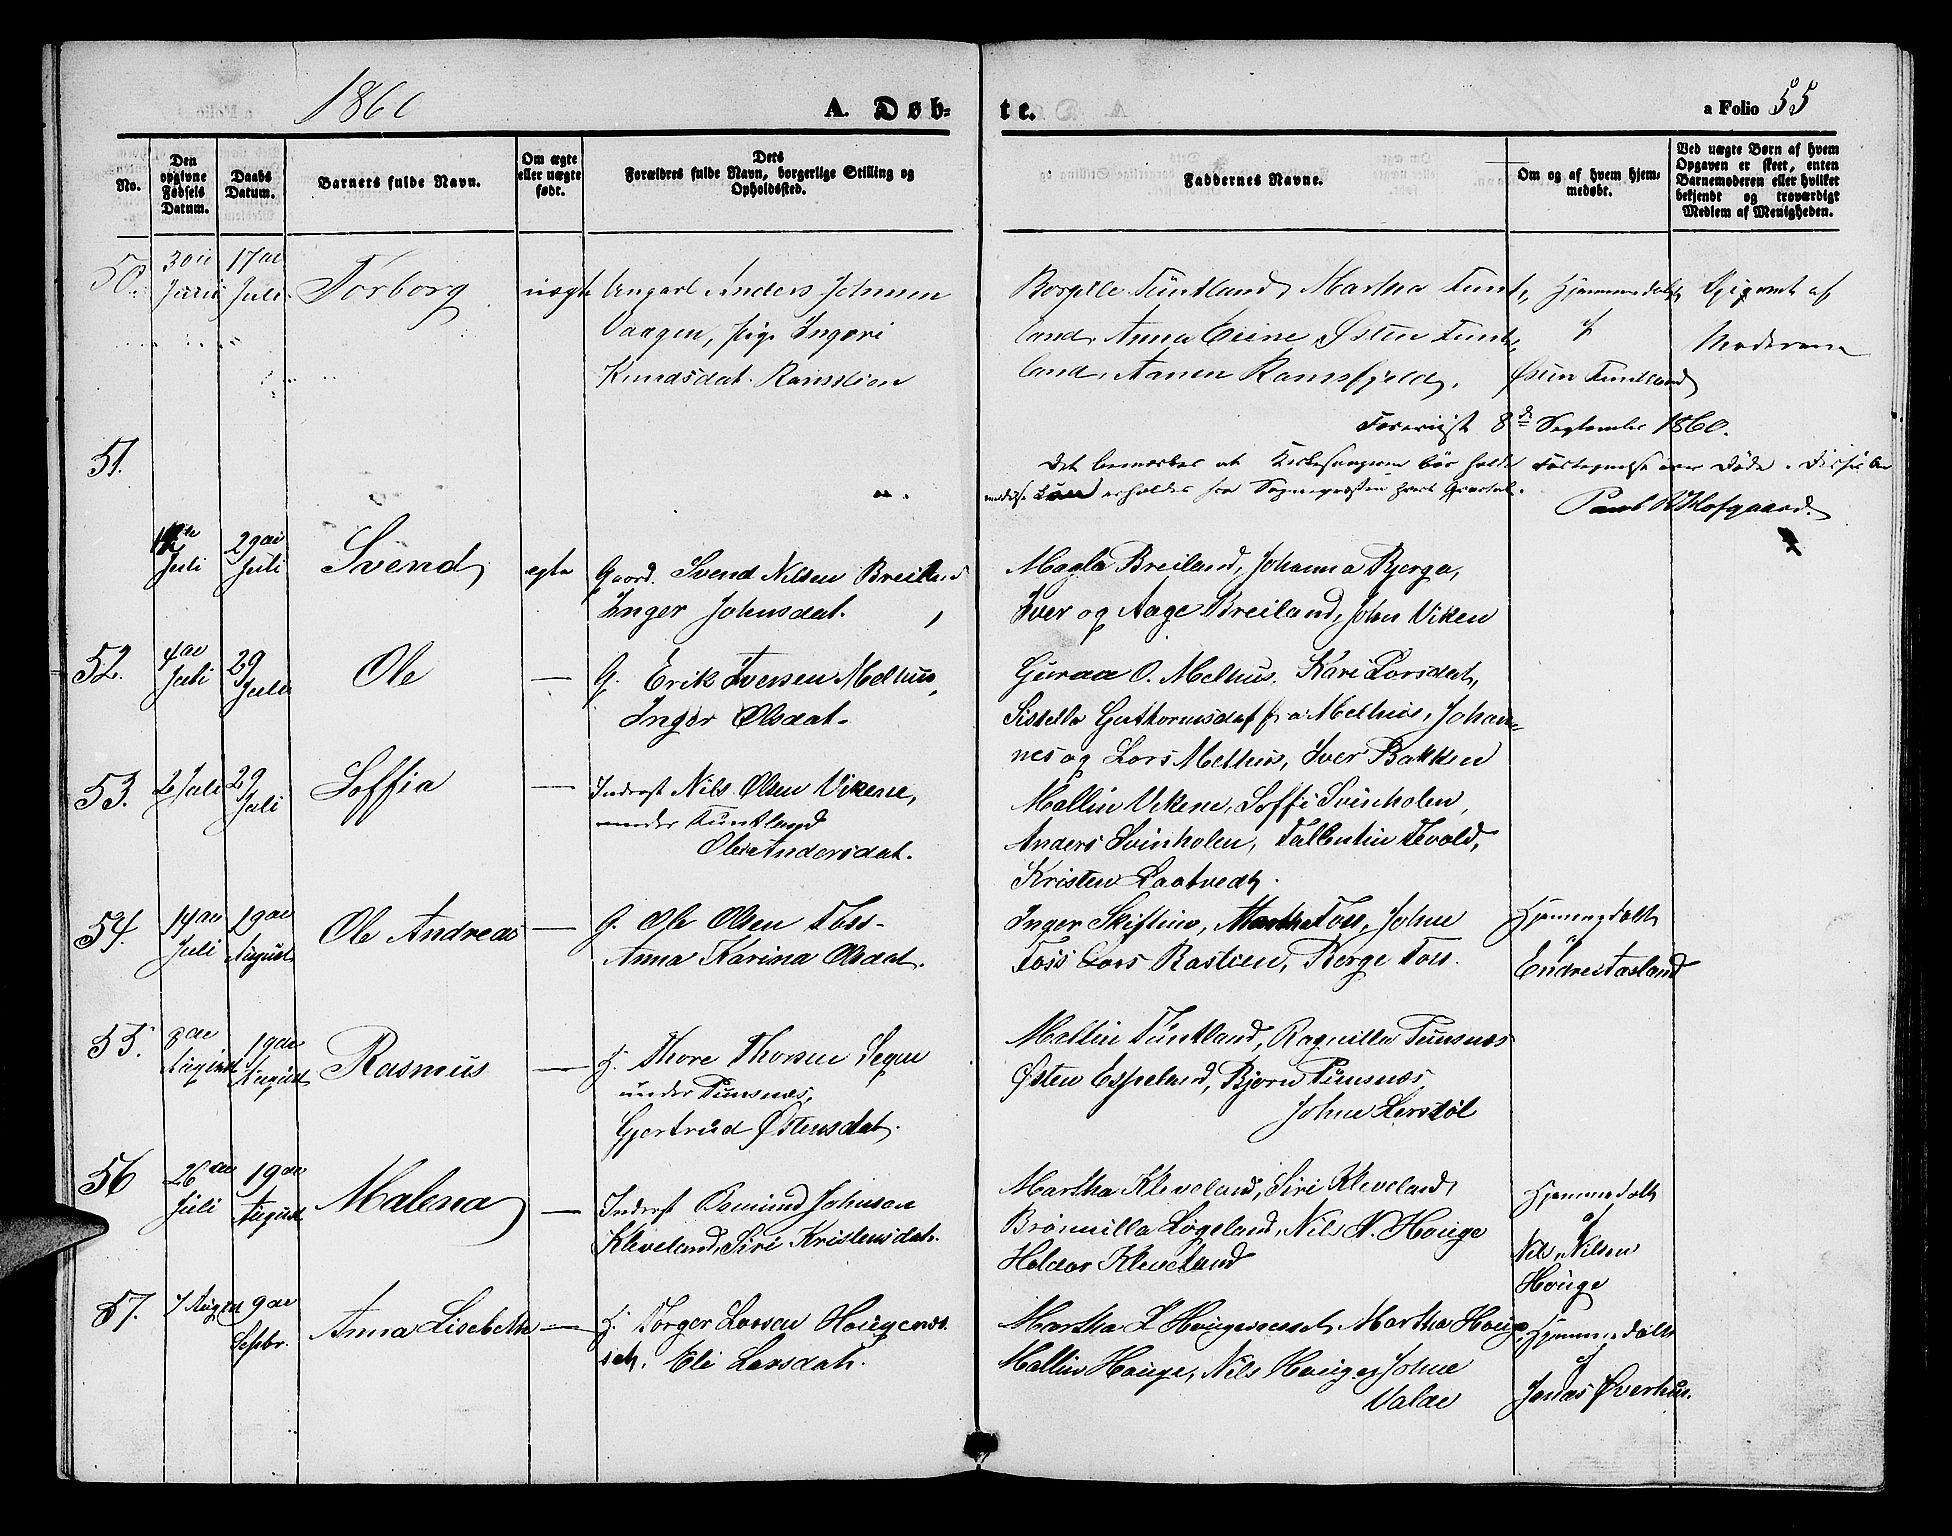 1860
A. Døb-
te.
a Folio 55
No.
Den opgivne Fødsels Datum.
Daabs Datum.
Barnets fulde Navn.
Om ægte eller uægte født.
Dets
Forældres fulde Navn, borgerlige Stilling og
Opholdssted.
Faddernes Navne.
Om og af hvem hjem-
medøbt.
Ved uægte Børn af hvem
Opgaven er skeet, enten
Barnemoderen eller hvilket
bekjendt og troværdigt
Medlem af Menigheden.
50. 30te 17de
Juni Juli Torborg uægte Ungarl Anders Johnsen
Vaagen, pige Ingeri
Knudsdat.
Tuntland, Martha Tunt-
land, Anna Eiine Østen Tunt-
land, Aanen Ramsfjeld.
Hjemmedøbt
af
Østen Tuntland
af
Moderen
Foreviist 8de September 1860.
51.
Det bemærkes at Kirkesangeren bør holde Fortegnelse over Døde
erholdes fra Sognepræsten hvert Qvartal.
Hofgaard.
Juli 29de Juli Svend ægte Gaard. Svend Nilsen Breiland
Inger Johnsdat.
Magla Breiland, Johanna Bjerga,
Iver og Aage Breiland, John Viken
52. 4de Juli 29 Juli Ole — G. Erik Iversen Melhus,
Inger Olsdat.
Guraa O. Melhus. Kari Larsdat,
Guthormsdat fra Melhus, Johan-
nes og Lars Melhus, Iver Bakken
53. 2 Juli 29 Juli Soffia — Inderst Nils Olsen Vikene,
under Tuntland
Andersdat.
Mallin Vikene, Soffi Svinholen,
Anders Svinholen, Tallentin Tvold,
Kristen Laatvedt.
54. 14de Juli 19de August Ole Andreas — G. Ole Olsen Foss-
Anna Karina Olsdat.
Inger Skiftun, Martha Foss, Johne
Foss Lars Rastien, Børge Foss.
Hjemmedøbt
af
Endre Tasland
55. 8de August 19de August Rasmus — H. Thore Thorsen Segen
under Funsnæs,
Gjertrud Østensdat.
Mallin Tuntland, Ragnilla Funsnæs
Østen Espeland, Bjørn Funsnæs
Johne Lerstøl
56 26de Juli 19de August Malena — Inderst Osmund Johnsen
Kleveland, Siri Kristensdat.
Martha Kleveland, Siri Kleveland,
Brønnilla Løgeland, Nils N. Houge
Haldor Kleveland
Hjemmedøbt
af
Nils Nilsen
Houge
57. 7 August 9de Septbr. Anna Lisebethe — H. Torger Larsen Hougenes
Eli Larsdat.
Martha Houge, Hjemmedøbt
Mallin Houge, Nils Houge, Johne
Valae
af
Jonas Øverhus.